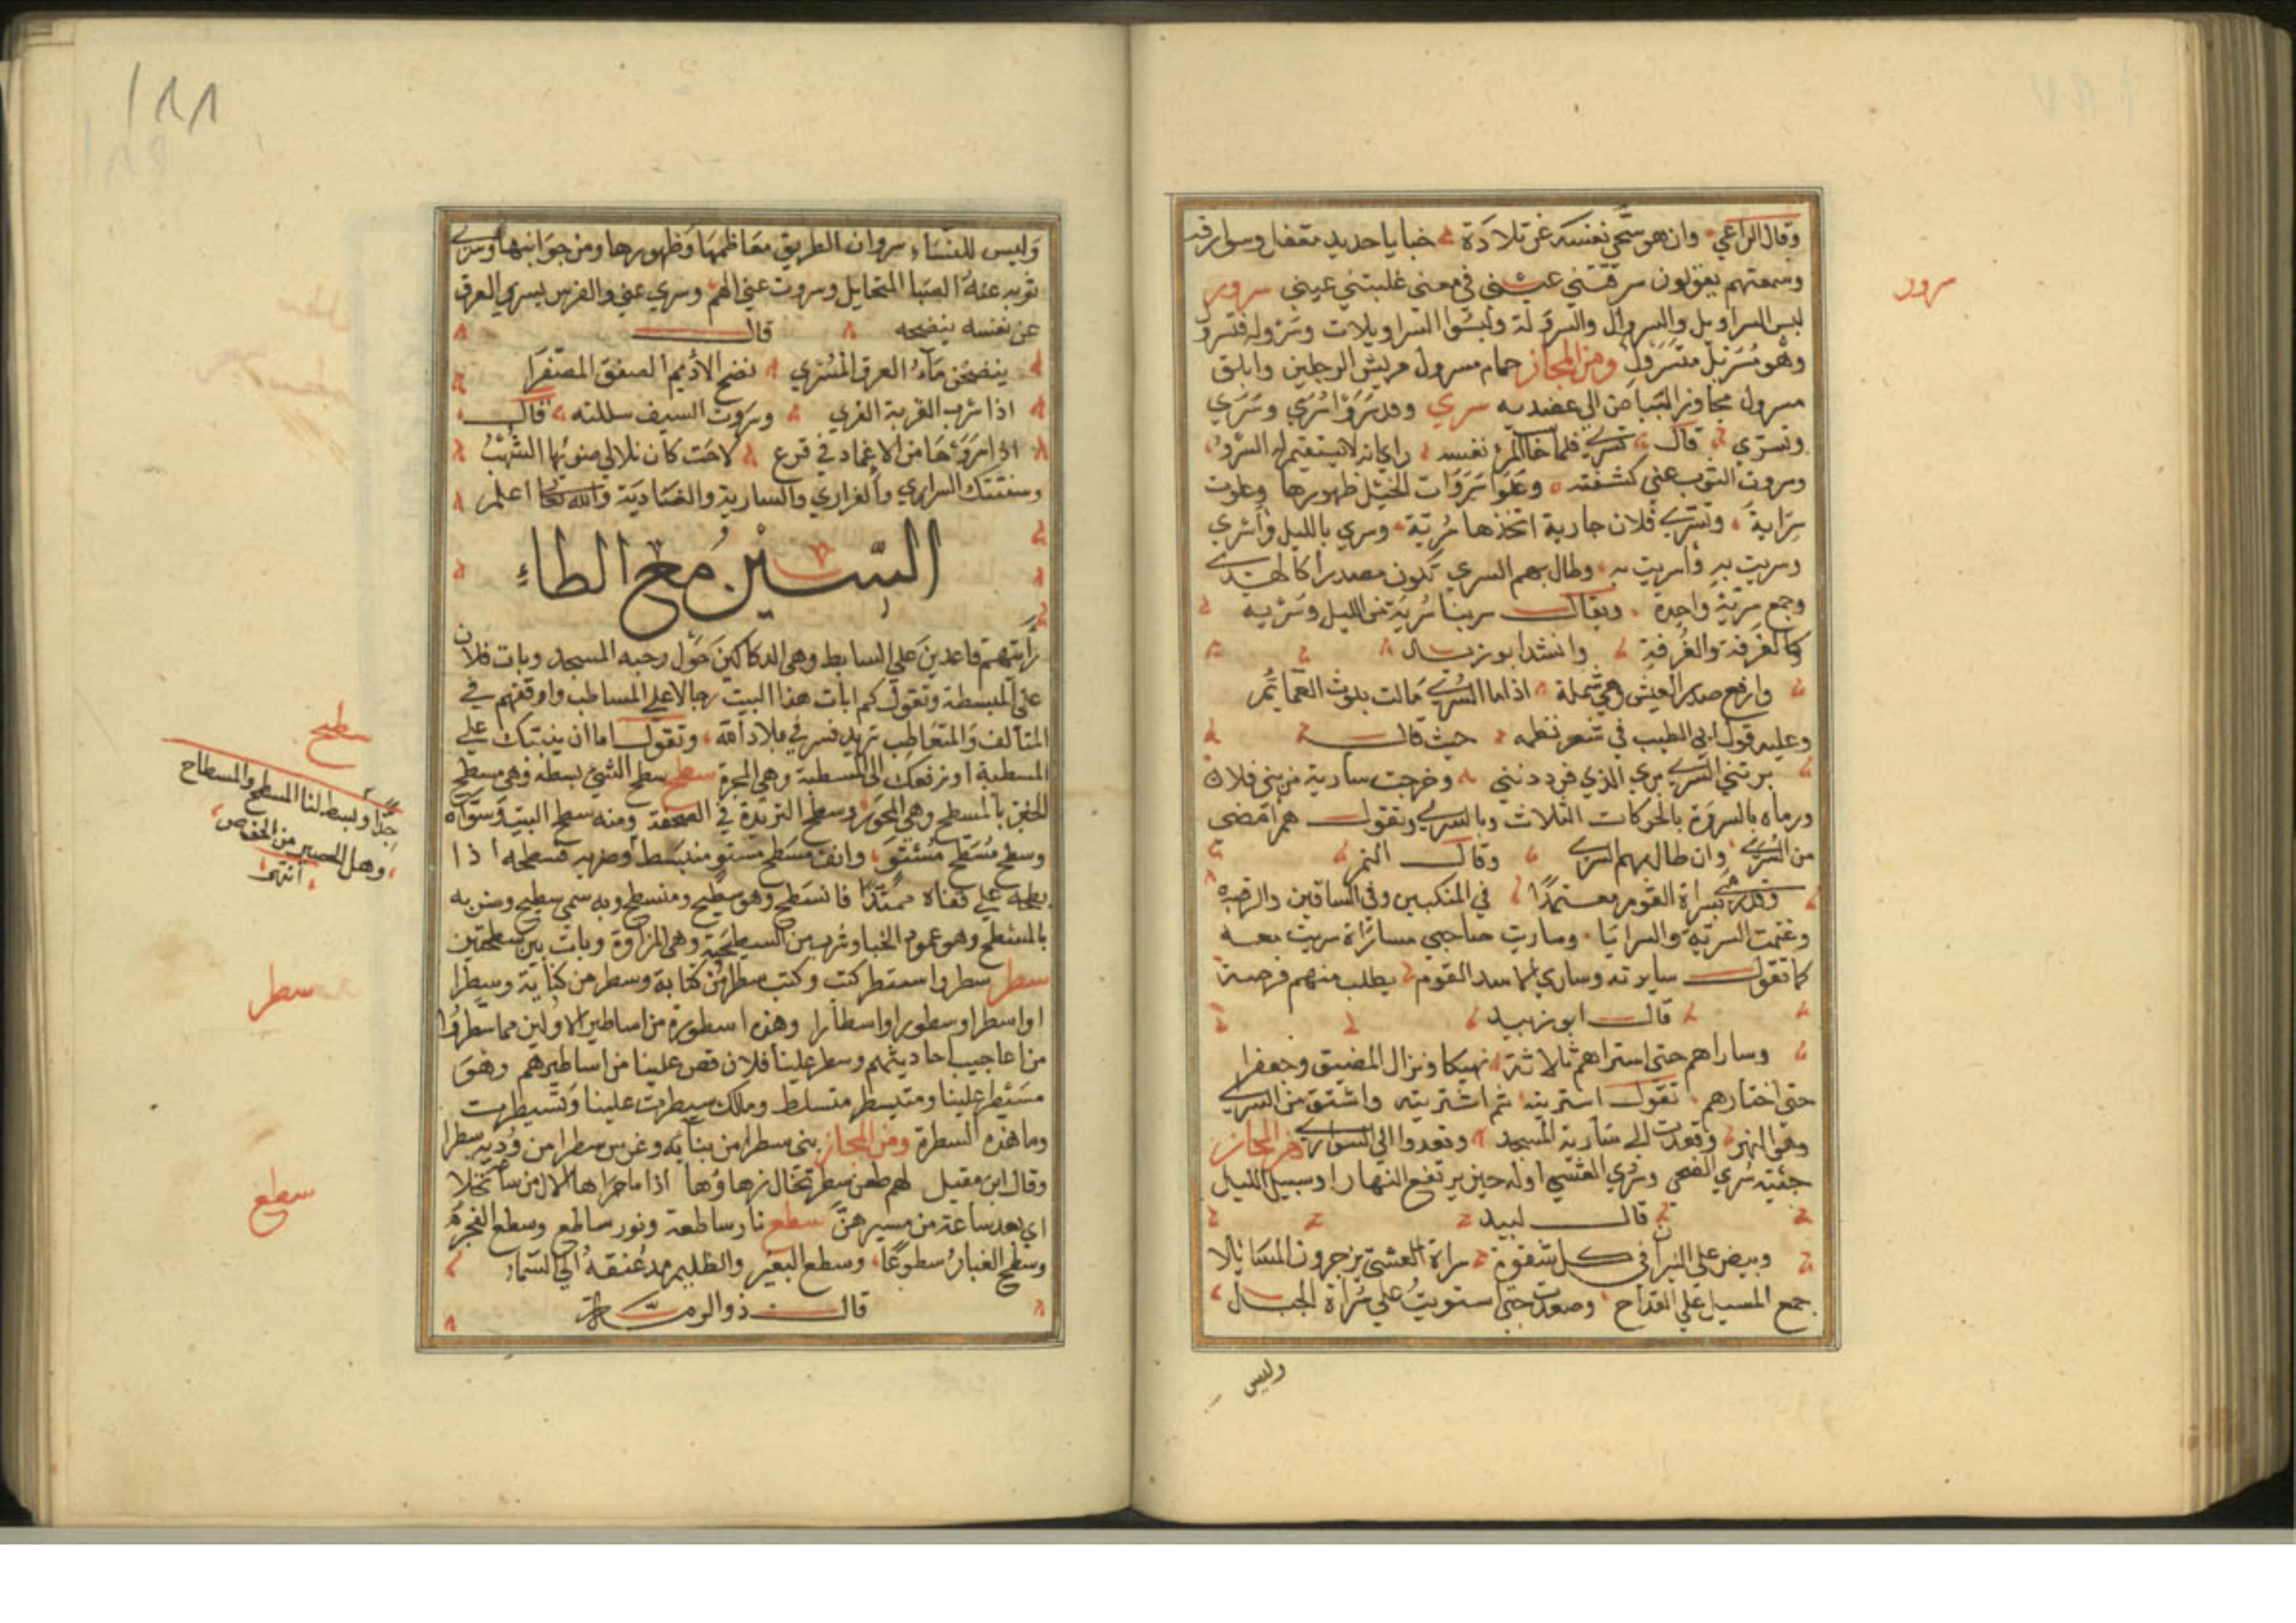 وقال الراعي وان هو سمي نفسه عن تلادة خبايا حديد مقفل وسوارقه
وسمعتهم يقولون سرقتني عيني في معنى غلبتني عيني سرول
لبس السراويل والسروال والسرولة ولبسوا السراويلات وسروله فتسرول
وهو مسربل متسرول ومن المجاز حمام مسرول مريش الرجلين وابلق
مسرول مجاوز البياض الي عضديه سري وقد سرو وسري وسري
وتسري قال تسري فلما حاسب المرء نفسه راي انه لا يستقيم له السرو
وسروت الثوب عني كشفته وعلوا سروات الخيل ظهورها وعلوت
سراية وتسري فلان جارية اتخذها سرية وسري بالليل وأسري
وسريت به وأسريت به وطال بهم السري تكون مصدرا كالهدي
وجمع سرية واحدة ويقال سرينا سرية من الليل وسرية
كالغرفة والغرفة وانشد ابو زيد
وارفع صدر العيش وهي شملة اذا ما السري مالت بلوث العمائم
وعليه قول ابي الطيب في شعر نظمه حيث قال
برتني السري بري المدي فرددنني وخرجت سارية من بني فلان
ورماه بالسروة بالحركات الثلاث وبالسري وتقول هم امضى
من السري وان طال بهم السري وقال النمر
وقد رمي بسراة القوم معتمدا في المنكبين وفي الساقين والرقبه
وغنمت السرية والسرايا وساريت صاحبي مساراة سريت معه
كما تقول سايرته وساري الاسد القوم يطلب منهم فرصة
قال ابو زبيد
وساراهم حتى استراهم ثلاثة نهيكا ونزال المضيق وجعفرا
حتى اختارهم تقول استريته ثم اشتريته واشتق من السري
وهو النهر وقعدت الي سارية المسجد وقعدوا الي السواري ومن المجاز
جئته سري الضحى وسري العشي اوله حين يرتفع النهار او سبيل الليل
قال لبيد
وبيض علي النيران في كل شتوة سراة العشي يزجرون المسايلا
جمع المسبل علي القداح وصعدت حتى استويت علي سراة الجبل
وليس
سرول
١٨٨
وليس للنساء سروان الطريق معاظمها وظهورها ومن جوانبها وسري
ثوبه عنه الصبا المتخايل وسروت عني الهم وسري عني والفرس يسري العرق
عن نفسه ينضحه قال
ينضحن ماء العرق المسري نضح الاديم الصفق المصفرا
اذا شرب القربة الفري وسروت السيف سللته قال
اذا سروها من الاغماد في قزع لاحت كان تلالي ضوئها الشهب
وصفتك السراري والغراري والسارية والغادية والله تعالى اعلم
السين مع الطاء
رأيتهم قاعدين علي السابط وهي الدكاكين حول رحبه المسجد وبات فلان
علي المسطبة وتقول كم ابات هذا البيت رجالا علي المساطب واوقفهم في
المتالف والمتعاطب تريد في بلاد الله وتقول اما ان يثبتك علي
المسطبة او نرفعك الي المسطبة وهي المجرة سطح سطح الشئ بسطه وهي مسطح
الخبز بالمسطح وهي المحور وسطح الثريدة في الصحفة ومنه سطح البيت وسواه
وسطح مسطح مستو وانف مسطح مستو منبسط وضربه فسطحه اذا
بطحه علي قفاه ممتدا فانسطح وهو سطيح ومنسطح وبه سمي سطيح وضربه
بالمسطح وهو عمود الخبا وشرب من السطيحة وهي المزاوة وبات بين سطحتين
سطر سطر واستطر كتب وكتب سطرا من كتابة وسطر من كتابة وسطرا
او اسطرا وسطورا واسطارا وهذه اسطورة من اساطير الاولين مما سطروا
من اعاجيب احاديثهم وسطر علينا فلان قص علينا من اساطيرهم وهو
مسيطر علينا ومتيسطر متسلط ومالك سيطرت علينا وتسيطرت
وما هذه السطرة ومن المجاز بنى سطرا من بنائه وغرس سطرا من وديه سطرا
وقال ابن مقبل لهم ظعن سطر تخال زهاوها اذا ما حزاها الال من ساعة نخلا
اي بعد ساعة من مسيرهن سطع نار ساطعة ونور ساطع وسطع الفجر
وسطع الغبار سطوعا وسطع البعير والظليم مد عنقه الي السماء
قال ذو الرمة
سطح
جدا وبسط لنا المسطح والمسطاح
وهل الحصير من الخوص
انتهى
سطر
سطع